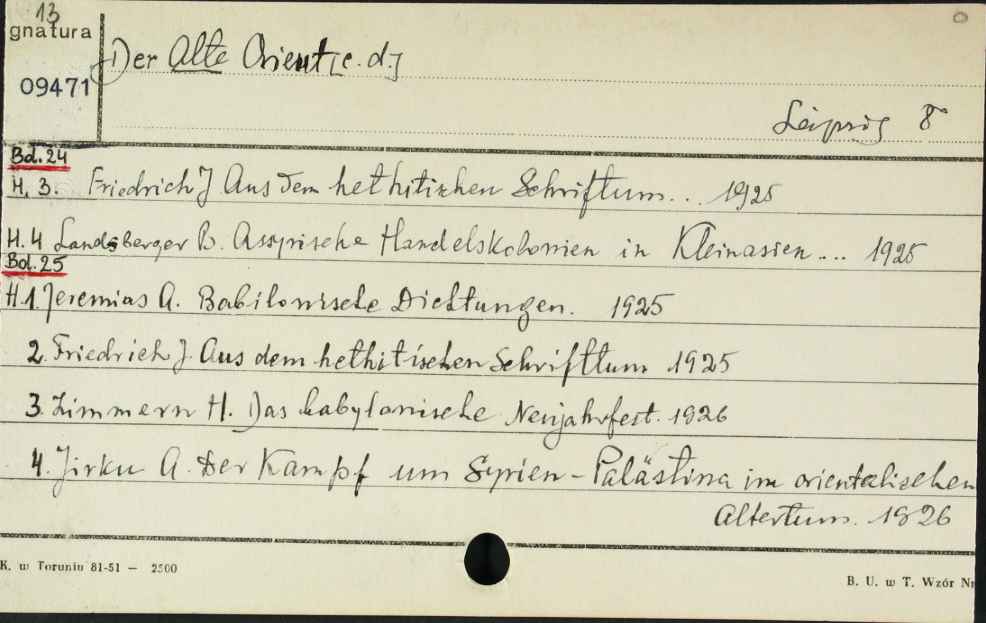 13
gnatura
09471
Der Alte Orient [c. d.]
Leipzig 8°
Bd. 24
H. 3. Friedrich J Aus dem hethitischen Schriftum... 1925
H. 4 Landsberger B. Assyrische Handelskolonien in Kleinasien... 1925
Bd. 25
H 1. Jeremias A. Babilonische Dichtungen. 1925
2. Friedrich J. Aus dem hethitischen Schrifttum 1925
3. Zimmern H. Das babylonische Neujahrfest. 1926
4. Jirku A. Der Kampf um Syrien-Palästina im orientalischen
Altertum. 1926
K. w Toruniu 81-51 — 2500
B. U. w T. Wzór Nr